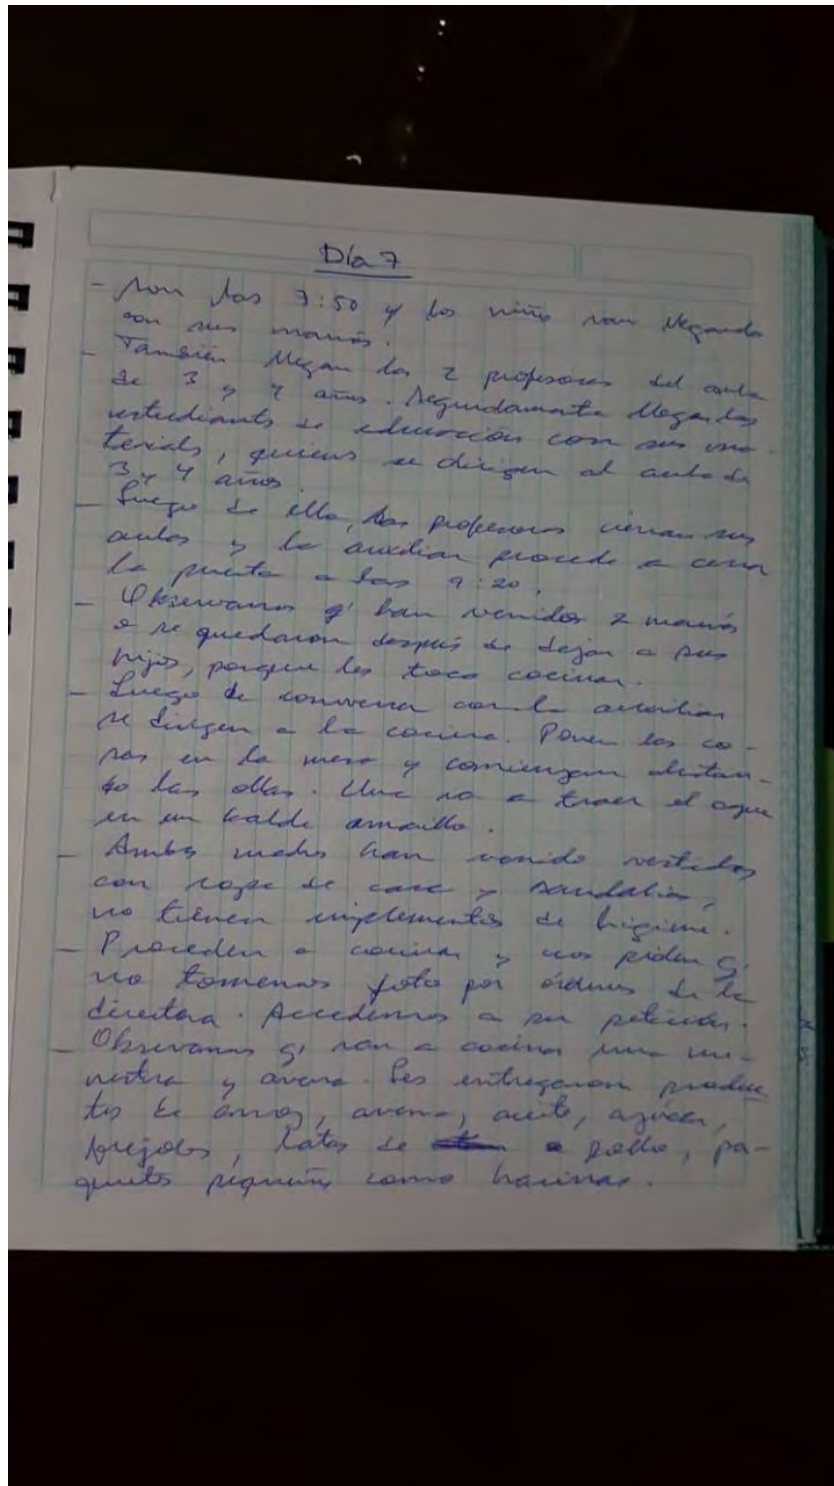 Día 7
- Son las 7:50 y los niño van llegando
con sus mamás.
- También llegan las 2 profesoras del aula
de 3 y 4 años. Seguidamente llegan las
estudiantes de educación con sus ma-
terials, quienes se dirigen al aula de
3 y 4 años.
- Luego de ello, las profesoras cierran sus
aulas y la auxiliar procede a cerrar
la puerta a las 9:20.
- Observamos q' han venidos 2 mamás
o se quedaron después de dejar a sus
hijos, porque les toca cocinar.
- Luego de conversar con la auxiliar
se dirigen a la cocina. Ponen las co-
sas en la mesa y comienzan alistan-
do las ollas. Una va a traer el agua
en un balde amarillo.
- Ambas madres han venido vestidas
con ropa de casa y sandalias,
no tienen implementos de higiene.
- Proceden a cocinar y nos piden q'
no tomemos foto por órdenes de la
directora. Accedemos a su petición.
- Observamos q' van a cocinar una me-
nestra y avena. Les entregaron produc
tos de arroz, avena, aceite, azúcar,
frejoles, latas de pollo, pa-
quetes pequeños como harinas.